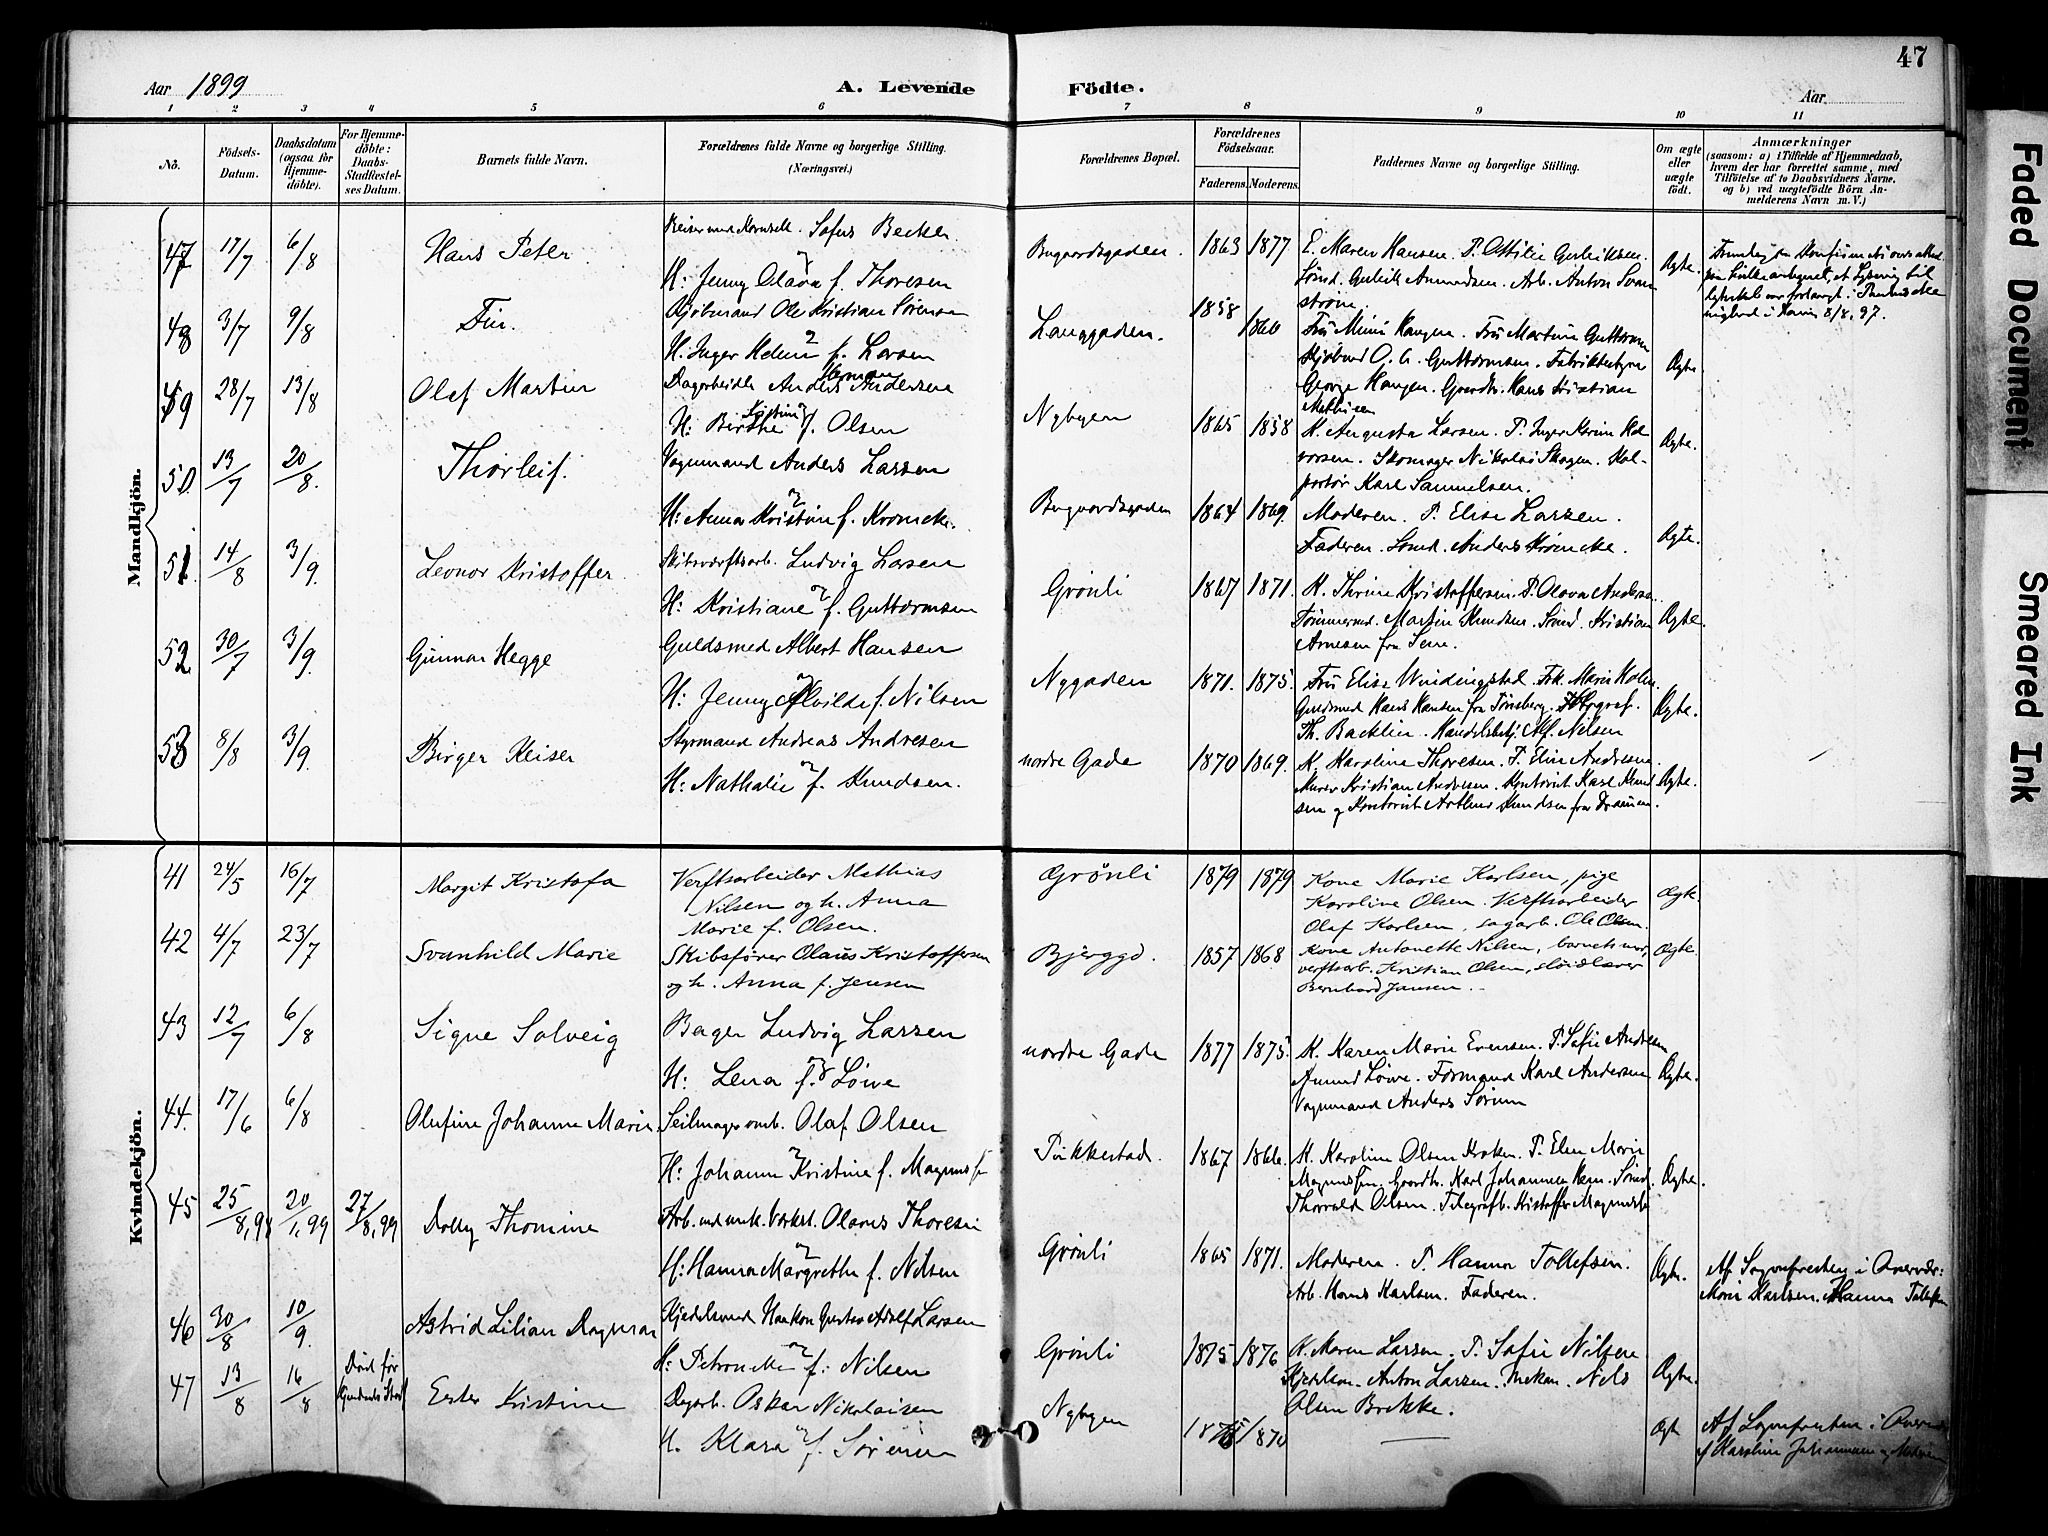 47
Aar 1899
A. Levende Födte.
Aar
1 2 3 4 5 6 7 8 9 10 11
No.
Födsels-Datum.
Daabsdatum (ogsaa for Hjemmedöbte).
For Hjemmedöbte: Daabs-Stadfæstelses Datum.
Barnets fulde Navn.
Forældrenes fulde Navne og borgerlige Stilling. (Næringsvei.)
Forældrenes Bopæl.
Forældrenes Födselsaar.
Faderens. Moderens.
Faddernes Navne og borgerlige Stilling.
Om ægte eller uægte födt.
Anmærkninger
(saasom: a) i Tilfælde af Hjemmedaab, hvem der har forrettet samme, med Tilföielse af to Daabsvidners Navne, og b) ved uægtefödte Börn Anmelderens Navn m. V.)
Mandkjön.
47 17/7 6/8 Hans Peter
Sofus Becker
H: Jenny Olava f. Thoresen
1863 1877 E. Maren Hansen. P. Ottilie
Anton
Ægte.
48 3/7 9/8 Fin.
Kjøbmand Ole Kristian Sørensen
H: Inger Helene f. Larsen
Langgaden. 1858 1860
Fru Mimi Haugen. Fru Martine Guttormsen
George Haugen. Hans Kristian Mathisen
Ægte.
49 28/7 13/8 Olaf Martin
Dagarbeider Anders Herman Andersen
H: Birthe Kristine f. Olsen
Nybyen 1865 1858
K. Augusta Larsen. P. Inger Karine
Skomager Nikolai Skogen.
Karl Samuelsen.
Ægte
50. 13/7 20/8. Thorleif.
Vognmand Anders Larsen
H: Anna Kristine f. Krømcke.
1864 1869.
Moderen. P. Elise Larsen.
Faderen. Anders Krømcke.
Ægte.
51. 14/8 3/9. Leonor Kristoffer
Skibsværftsarb. Ludvig Larsen
H: Kristiane f. Guttormsen
Grønli 1867 1871.
K. Thrine Kristoffersen. P. Olava Andersen.
Tømmermd. Martin Knudsen. Kristian
Arnesen fra Sem.
Ægte.
52 30/7 3/9. Gunnar Hegge
Guldsmed Albert Hansen
H: Jenny Alvilde f. Nilsen
Nygaden 1871. 1875.
Fru Elise Windingstad. Frk. Marie Holm.
Guldsmed Hans Hansen fra Tønsberg. Fotograf.
Nilsen
Ægte.
53 8/8 3/9. Birger Keiser
Styrmand Andreas Andresen
H: Nathalie f. Knudsen.
nordre Gade 1870 1869.
K. Karoline Thoresen. P. Elin Andresen.
Murer Kristian Andresen. Kontorist Karl Knud
sen og Kontorist Arthur Knudsen fra Drammen.
Ægte.
Kvindekjön.
41 24/5 16/7 Margit Kristofa
Verftsarbeider Mathias
Nilsen og h. Anna
Marie f. Olsen.
Grønli 1879 1879
Kone Marie Karlsen, pige
Karoline Olsen. Verftsarbeider
Olaf Karlsen, sagarb. Ole Olsen.
Ægte.
42 4/7 23/7 Svanhild Marie
Skibsfører Olaus Kristoffersen
og h. Anna f. Jensen
Bjerggd. 1857 1868
Kone Antonette Nilsen, barnets mor,
verftsarb. Kristian Olsen, sløidlærer
Bernhard Jansen.
Ægte.
43 12/7 6/8 Signe Solveig
Bager Ludvig Larsen
H: Lena f. Løwe
nordre Gade 1877 1875.
K. Karen Marie Evensen. P. Sofie Andresen
Løwe. Formand Karl Andersen
Vognmand Anders Sørum
Ægte.
44. 17/6 6/8 Olufine Johanne Marie.
Olaf Olsen
H: Johanne Kristine f. Magnussen
Pukkestad. 1867 1866.
K. Karoline Olsen Kroken. P. Elen Marie
Magnussen. Karl Johannesen
Thorvald Olsen. Telegrafb. Kristoffer Magnussen
Ægte.
45 25/8,98 20/1,99 27/8,99 Dolly Thomine
Arb. ved mek. Værkst. Olavus Thoresen
H: Hanna Margrethe f. Nilsen
Grønli 1865 1871.
Moderen. P. Hanna Tollefsen.
Arb. Hans Karlsen. Faderen.
Ægte.
Af Sognepresten i Overvær:
Marie Karlsen. Hanna Tollefsen
46 30/8 10/9. Astrid Lilian Dagmar
Kjedelsmed Haakon Gustav Adolf Larsen
H: Petronelle f. Nilsen
Grønli 1875 1876
K. Maren Larsen. P. Sofie Nilsen
Anton Larsen. Nils
Olsen Brekke.
Ægte.
47 13/8 16/8 Død før Ester Kristine
Dagarb. Oskar Nikolaisen
H. Klara f. Sørensen
Nybyen 1870
Ægte
Af Sognepresten i Overvær
af Karoline Johannesen og Moderen
Faded Document
Smeared Ink